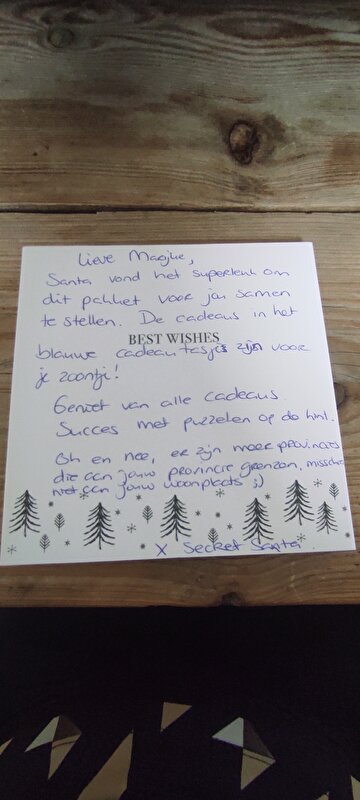 Lieve Maajke,
Santa vond het superleuk om
dit pakket voor jou samen
te stellen. De cadeaus in het
BEST WISHES
blauwe cadeautasje zijn voor
je zoontje!
Geniet van alle cadeaus.
Succes met puzzelen op de hint.
Oh en nee, er zijn meer provincies
die aan jouw provincie grenzen, misschien
niet aan jouw woonplaats ;)
X Secret Santa.